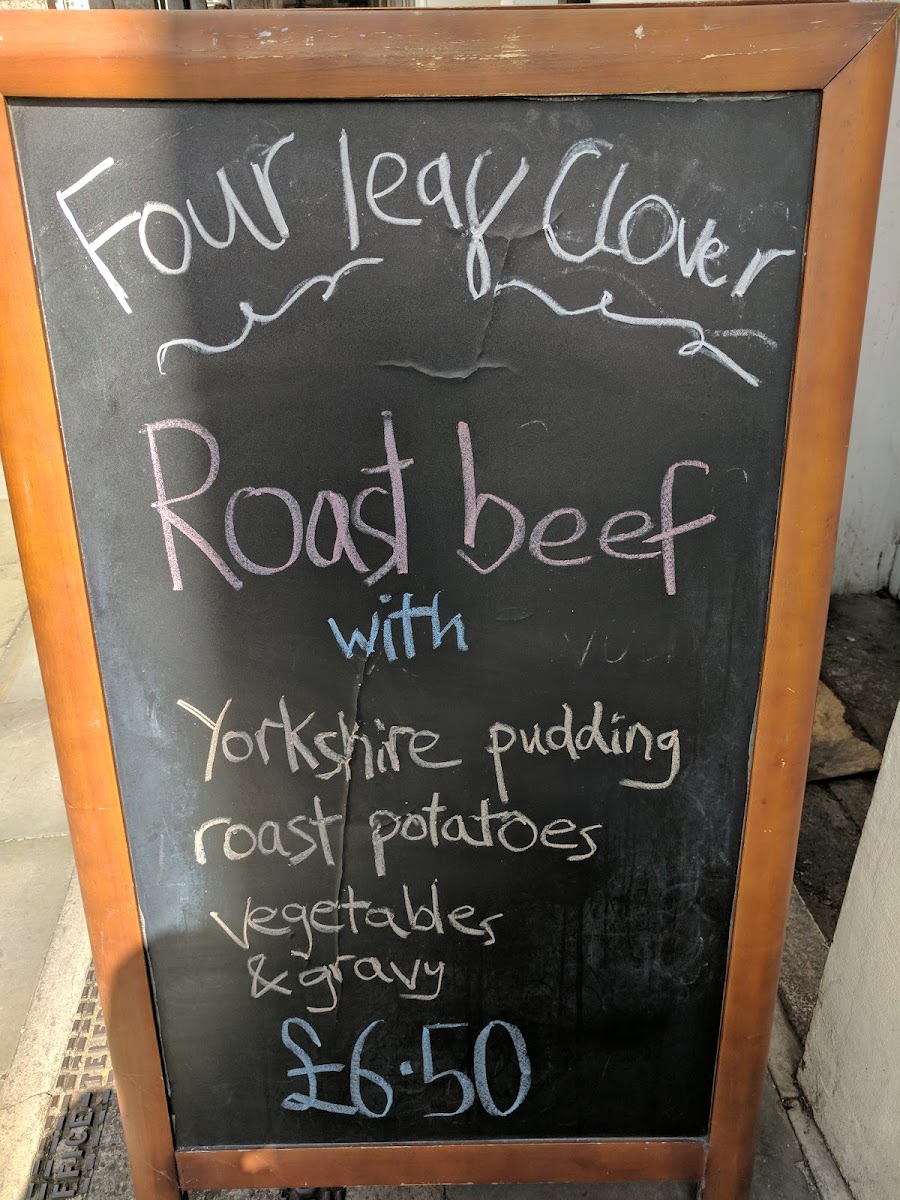 Four leaf Clover
Roast beef
with
Yorkshire pudding
roast potatoes
vegetables
& gravy
£6.50